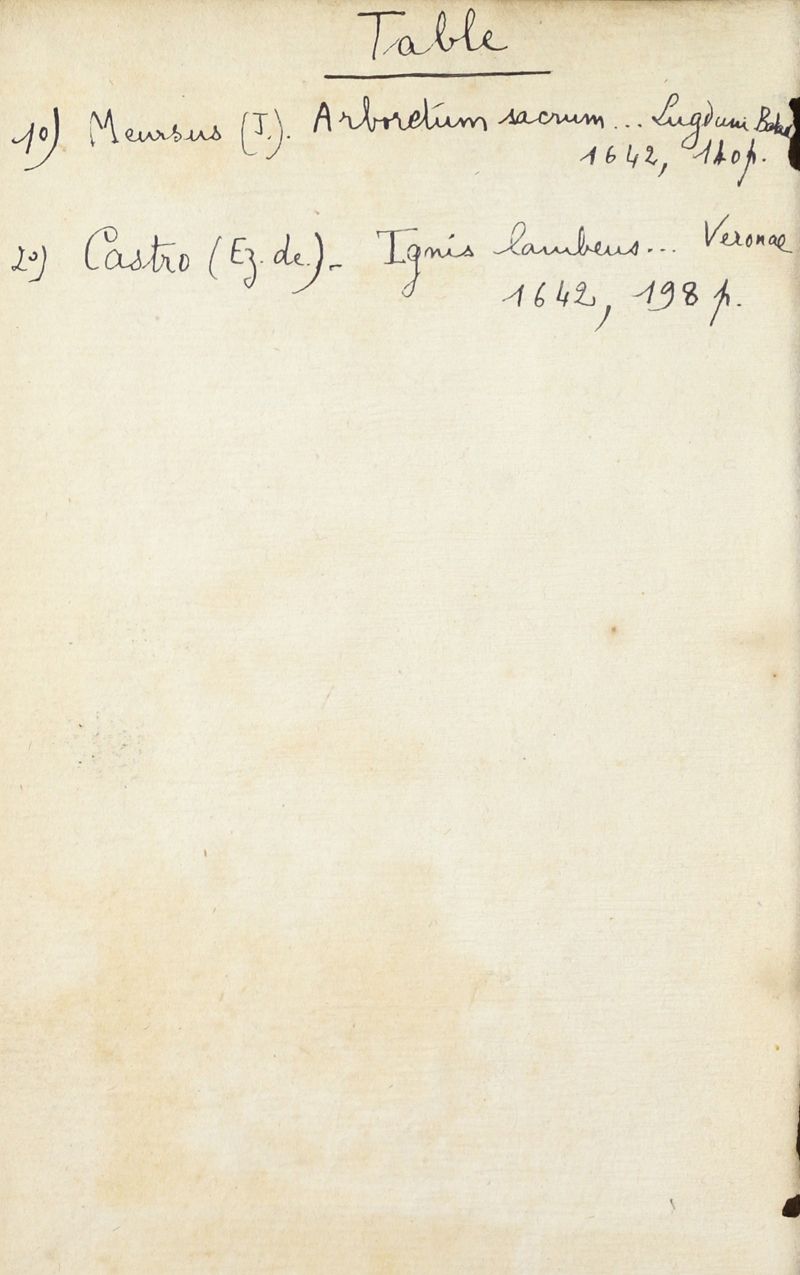 Table
1º) Meursus (J.). Arboretum sacrum ... Lugduni
1642, 140 p.
2º) Castro (Ez. de.) - Ignis lambens ... Veronae
1642, 198 p.